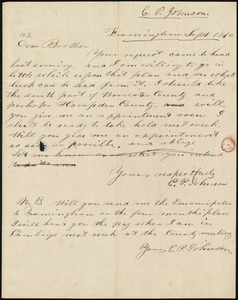 C. P. Johnson.
Framingham Sept 1840
Dear Brother
Your request came to hand
last evening, and I am willing to go a
little while upon this plan and see what
work can be had from it. I should like
the south part of Worcester County and
perhaps Hampden County, will you
give me an appointment soon? I
shall be ready to take hold next
week. Will you give me an appointment
as soon as possible, and oblige
Yours respectfully
C. P. Johnson
N. B. Will you send me the Emancipator
to Framingham on the four month plan
I will hand you the pay when I am in
Cambridge next week at the County meeting
Yours C P Johnson